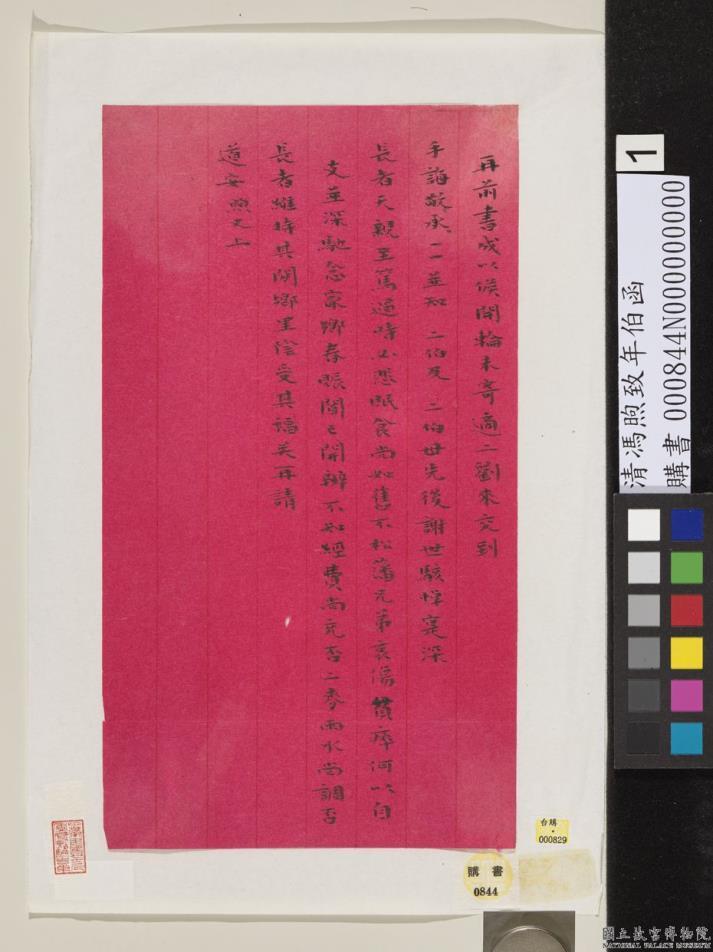 再前書成以候開輪未寄適二劉來交到
手諭敬承一一並知 二伯及 三伯母先後謝世駭悼寔深
長者天親至篤過時必悲眠食尚如舊不松藩兄弟哀傷貧瘁何以自
支並深馳念家鄉春賑聞已開辦不知經費尚充否二麥雨水尚調否
長者維持其間鄉里陰受其福矣再請
道安 煦又上
清馮煦致年伯函
購書 000844N000000000
1
台購
000829
購 書
0844
國立故宮博物院
NATIONAL PALACE MUSEUM